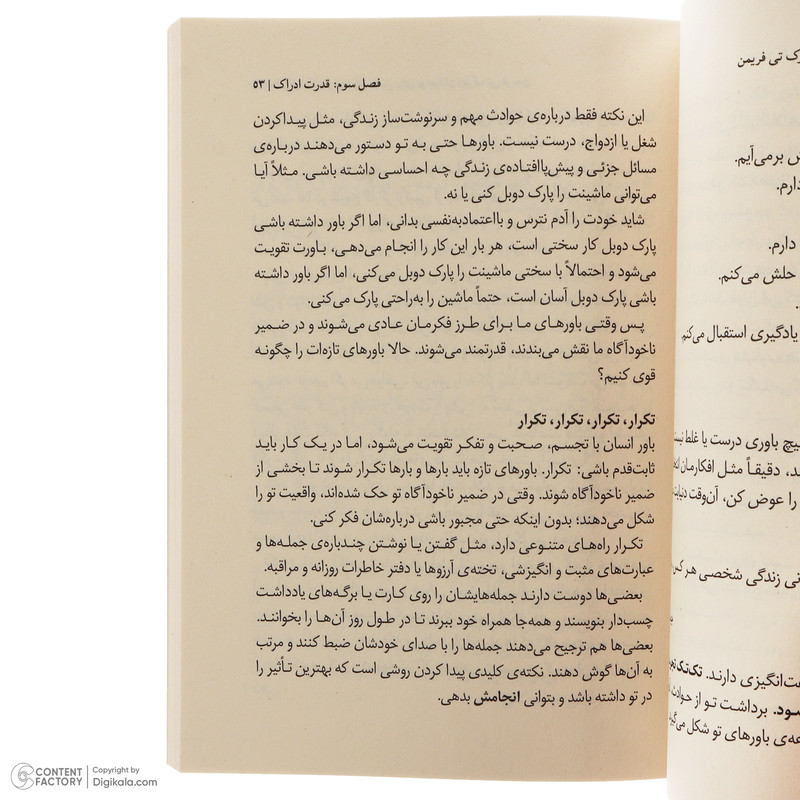 رک تی فریمن
ش برمی‌آیم.
دارم.
دارم.
حلش می‌کنم.
یادگیری استقبال می‌کنم
هیچ باوری درست یا غلط نیست
ند، دقیقاً مثل افکارمان
را عوض کن، آن‌وقت
نی زندگی شخصی هر
فت‌انگیزی دارند. تک‌تک
سود. برداشت تو از حوادث
عه‌ی باورهای تو شکل می‌گیر
فصل سوم: قدرت ادراک | ۵۳
این نکته فقط درباره‌ی حوادث مهم و سرنوشت‌ساز زندگی، مثل پیداکردن
شغل یا ازدواج، درست نیست. باورها حتی به تو دستور می‌دهند درباره‌ی
مسائل جزئی و پیش‌پاافتاده‌ی زندگی چه احساسی داشته باشی. مثلاً آیا
می‌توانی ماشینت را پارک دوبل کنی یا نه.
شاید خودت را آدم نترس و بااعتمادبه‌نفسی بدانی، اما اگر باور داشته باشی
پارک دوبل کار سختی است، هر بار این کار را انجام می‌دهی، باورت تقویت
می‌شود و احتمالاً با سختی ماشینت را پارک دوبل می‌کنی، اما اگر باور داشته
باشی پارک دوبل آسان است، حتماً ماشین را به‌راحتی پارک می‌کنی.
پس وقتی باورهای ما برای طرز فکرمان عادی می‌شوند و در ضمیر
ناخودآگاه ما نقش می‌بندند، قدرتمند می‌شوند. حالا باورهای تازه‌ات را چگونه
قوی کنیم؟
تکرار، تکرار، تکرار، تکرار
باور انسان با تجسم، صحبت و تفکر تقویت می‌شود، اما در یک کار باید
ثابت‌قدم باشی: تکرار. باورهای تازه باید بارها و بارها تکرار شوند تا بخشی از
ضمیر ناخودآگاه شوند. وقتی در ضمیر ناخودآگاه تو حک شده‌اند، واقعیت تو را
شکل می‌دهند؛ بدون اینکه حتی مجبور باشی درباره‌شان فکر کنی.
تکرار راه‌های متنوعی دارد، مثل گفتن یا نوشتن چندباره‌ی جمله‌ها و
عبارت‌های مثبت و انگیزشی، تخته‌ی آرزوها یا دفتر خاطرات روزانه و مراقبه.
بعضی‌ها دوست دارند جمله‌هایشان را روی کارت یا برگه‌های یادداشت
چسب‌دار بنویسند و همه‌جا همراه خود ببرند تا در طول روز آن‌ها را بخوانند.
بعضی‌ها هم ترجیح می‌دهند جمله‌ها را با صدای خودشان ضبط کنند و مرتب
به آن‌ها گوش دهند. نکته‌ی کلیدی پیدا کردن روشی است که بهترین تأثیر را
در تو داشته باشد و بتوانی انجامش بدهی.
CONTENT FACTORY
Copyright by
Digikala.com